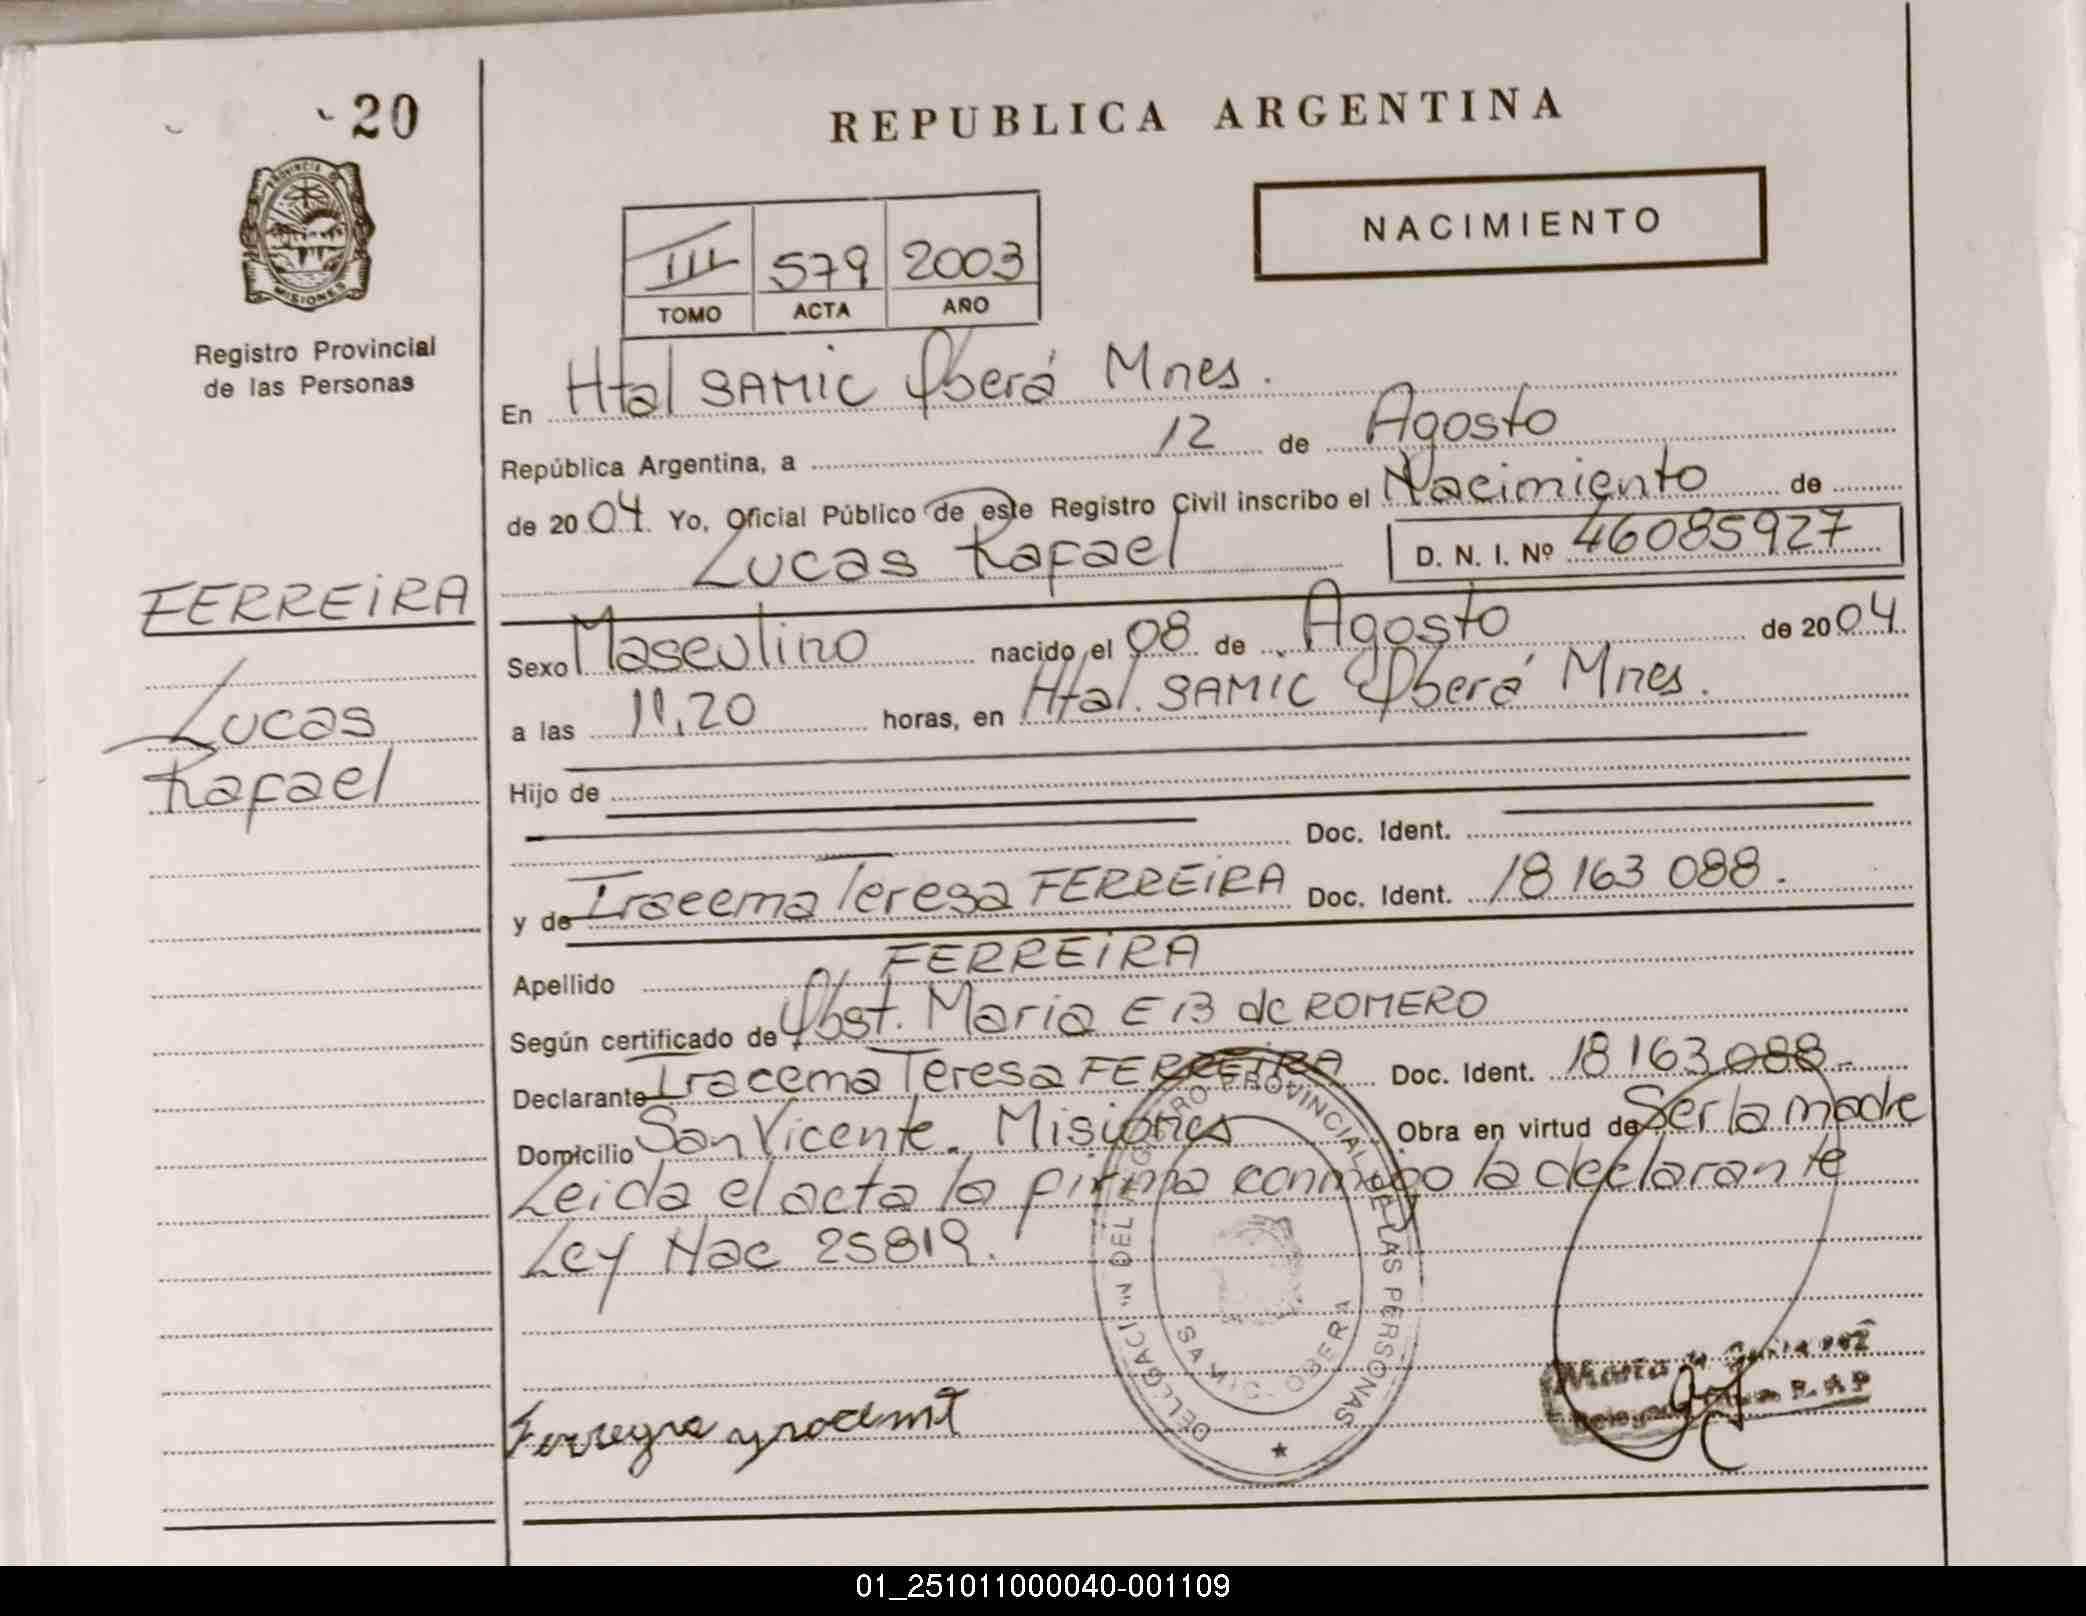 20
REPUBLICA ARGENTINA
PROVINCIA D
MISIONES
NACIMIENTO
III 579 2003
TOMO ACTA AÑO
Registro Provincial
de las Personas
En Htal SAMIC Oberá Mnes.
República Argentina, a 12 de Agosto
de 2004. Yo, Oficial Público de este Registro Civil inscribo el Nacimiento de
Lucas Rafael D. N. I. Nº 46085927
FERREIRA
Lucas
Rafael
Sexo Masculino nacido el 08 de Agosto de 2004
a las 11,20 horas, en Htal. SAMIC Oberá Mnes.
Hijo de
Doc. Ident.
y de Iracema Teresa FERREIRA Doc. Ident. 18 163 088.
Apellido FERREIRA
Según certificado de Obst. Maria E B de ROMERO
Declarante Iracema Teresa FERREIRA Doc. Ident. 18 163 088.-
Domicilio San Vicente. Misiones Obra en virtud de Ser la madre
Leida el acta la firma conmigo la declarante
Ley Nac 25819.
DEL REGISTRO PROVINCIAL DE LAS PERSONAS
OBERA
01_251011000040-001109